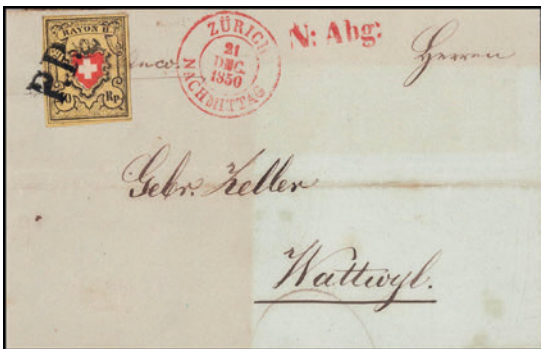 RAYON II.
PP
10 Rp.
franco.
ZÜRICH
21
DEC.
1850
NACHMITTAG
N: Abg:
Herren
Gebr. Keller
Wattwyl.